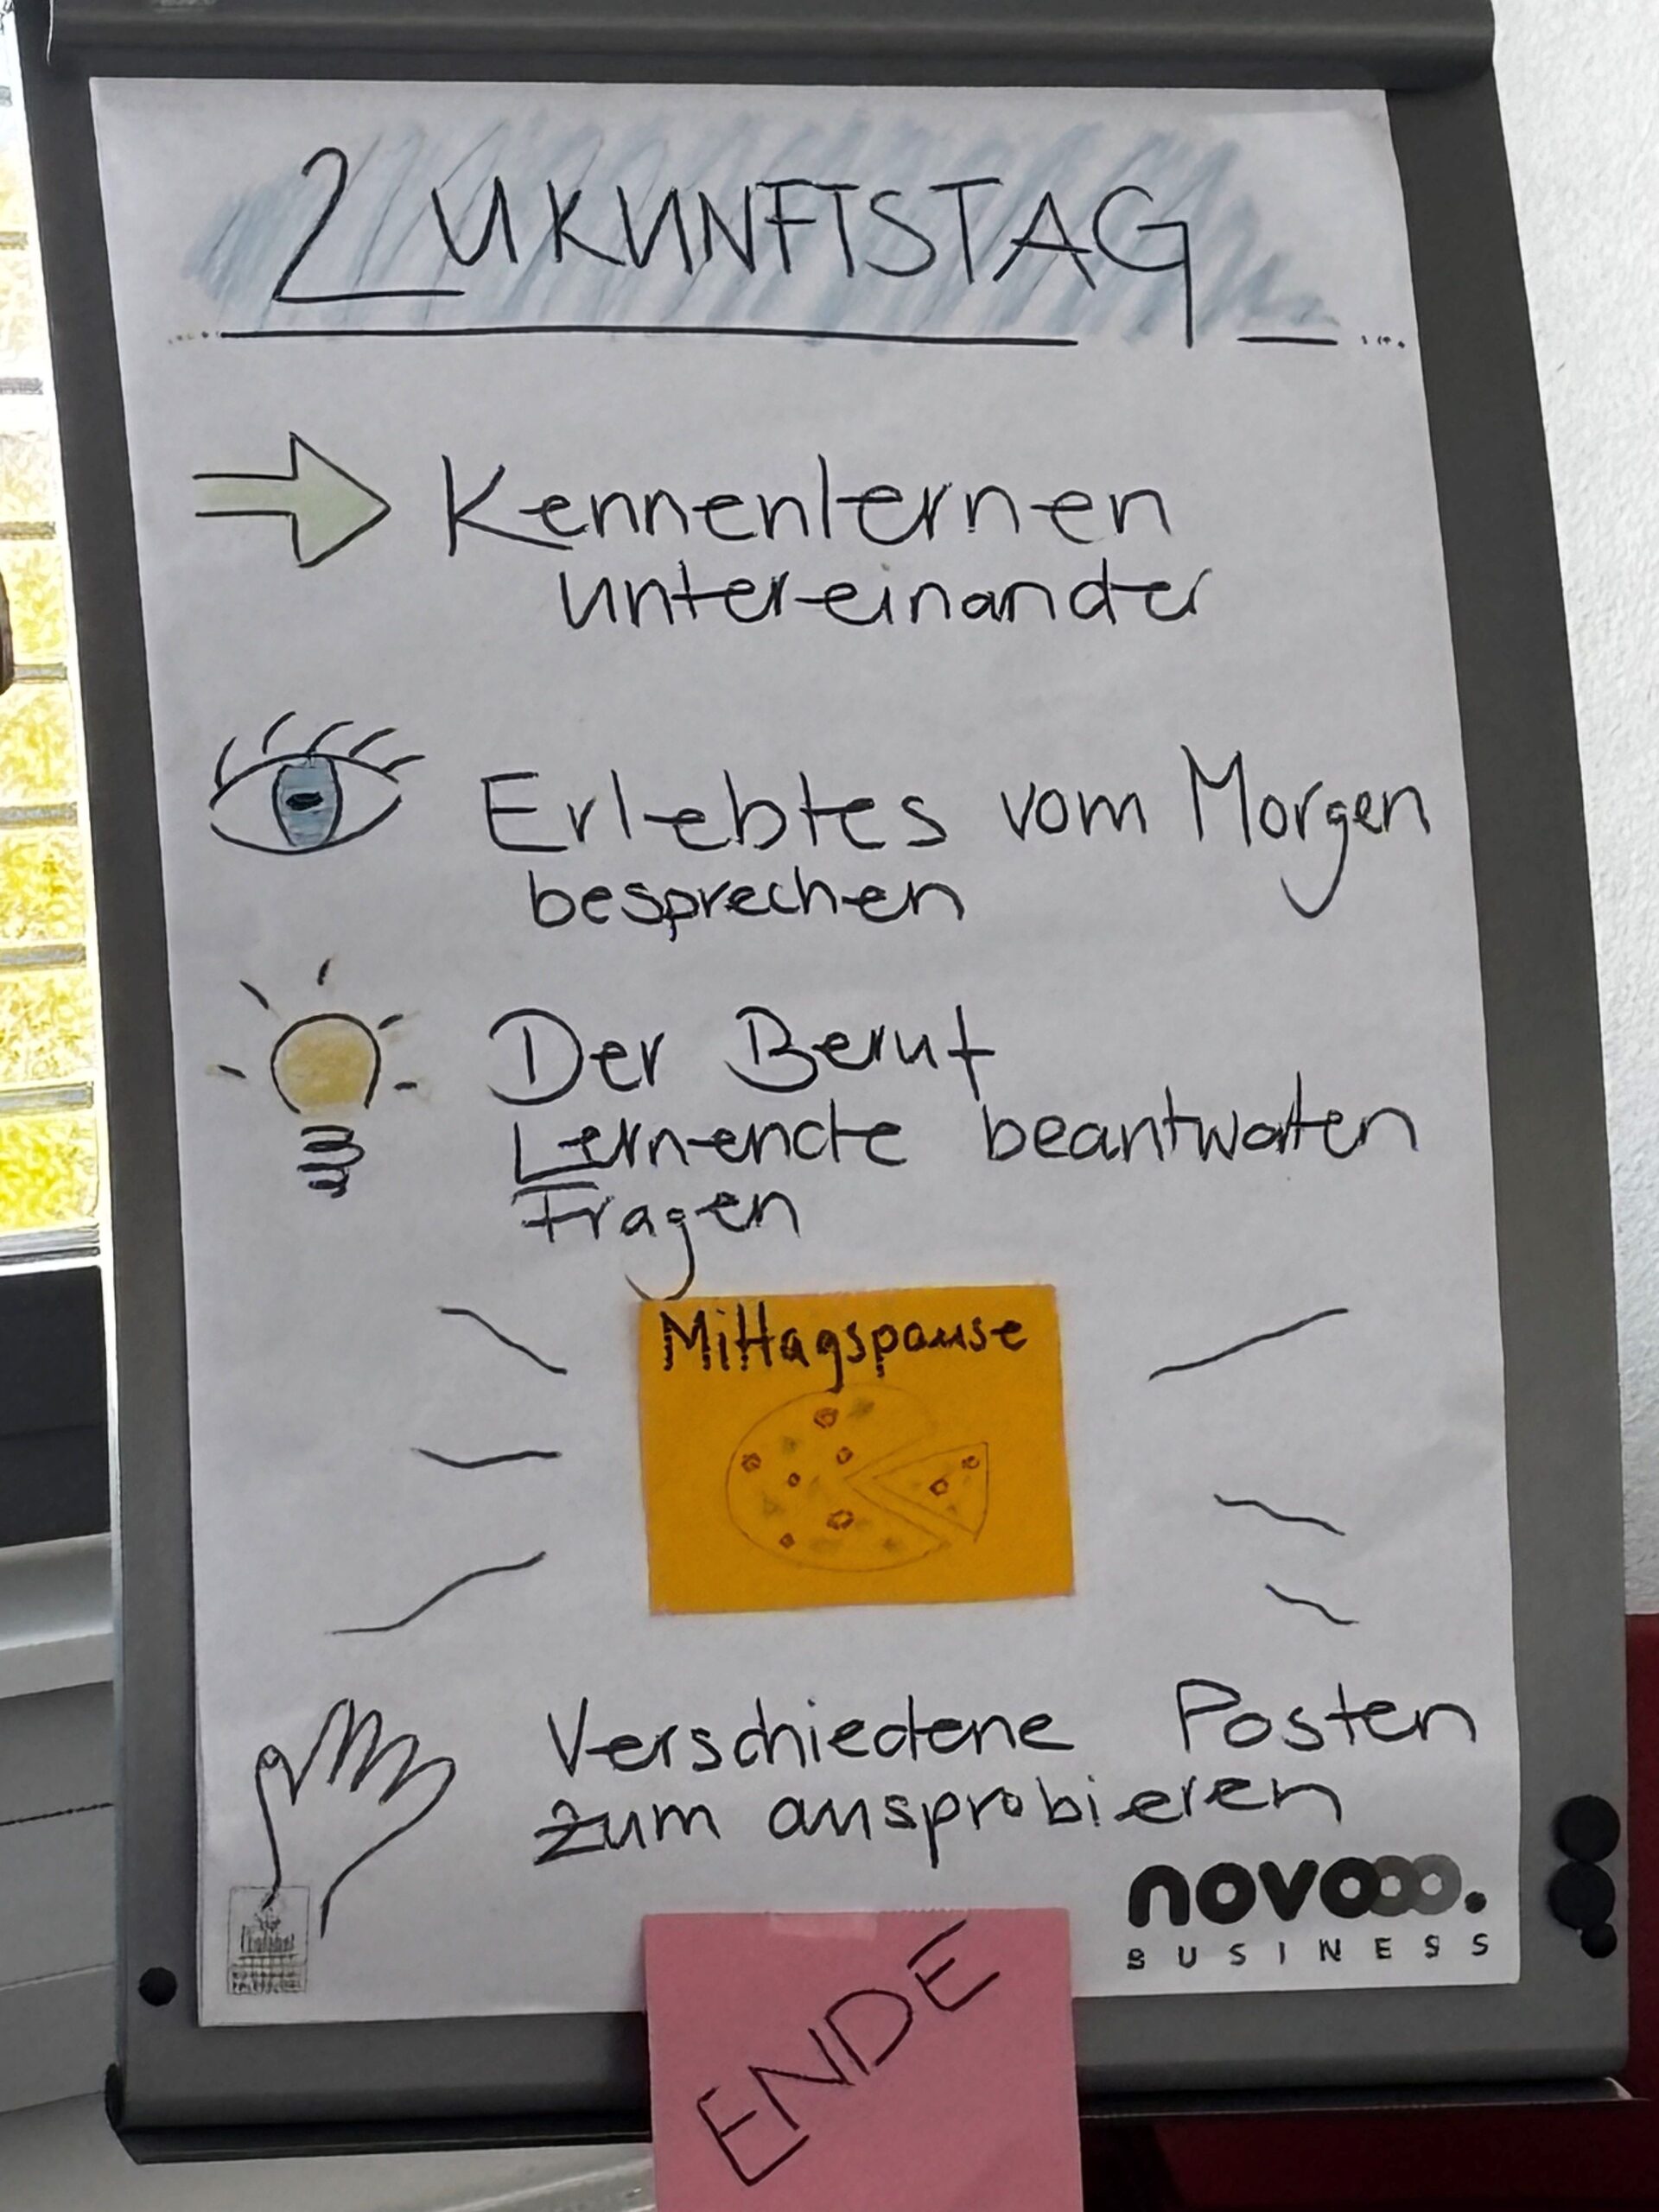 ZUKUNFTSTAG
Kennenlernen
untereinander
Erlebtes vom Morgen
besprechen
Der Beruf
Lernende beantworten
Fragen
Mittagspause
Verschiedene Posten
zum ausprobieren
novooo.
BUSINESS
ENDE